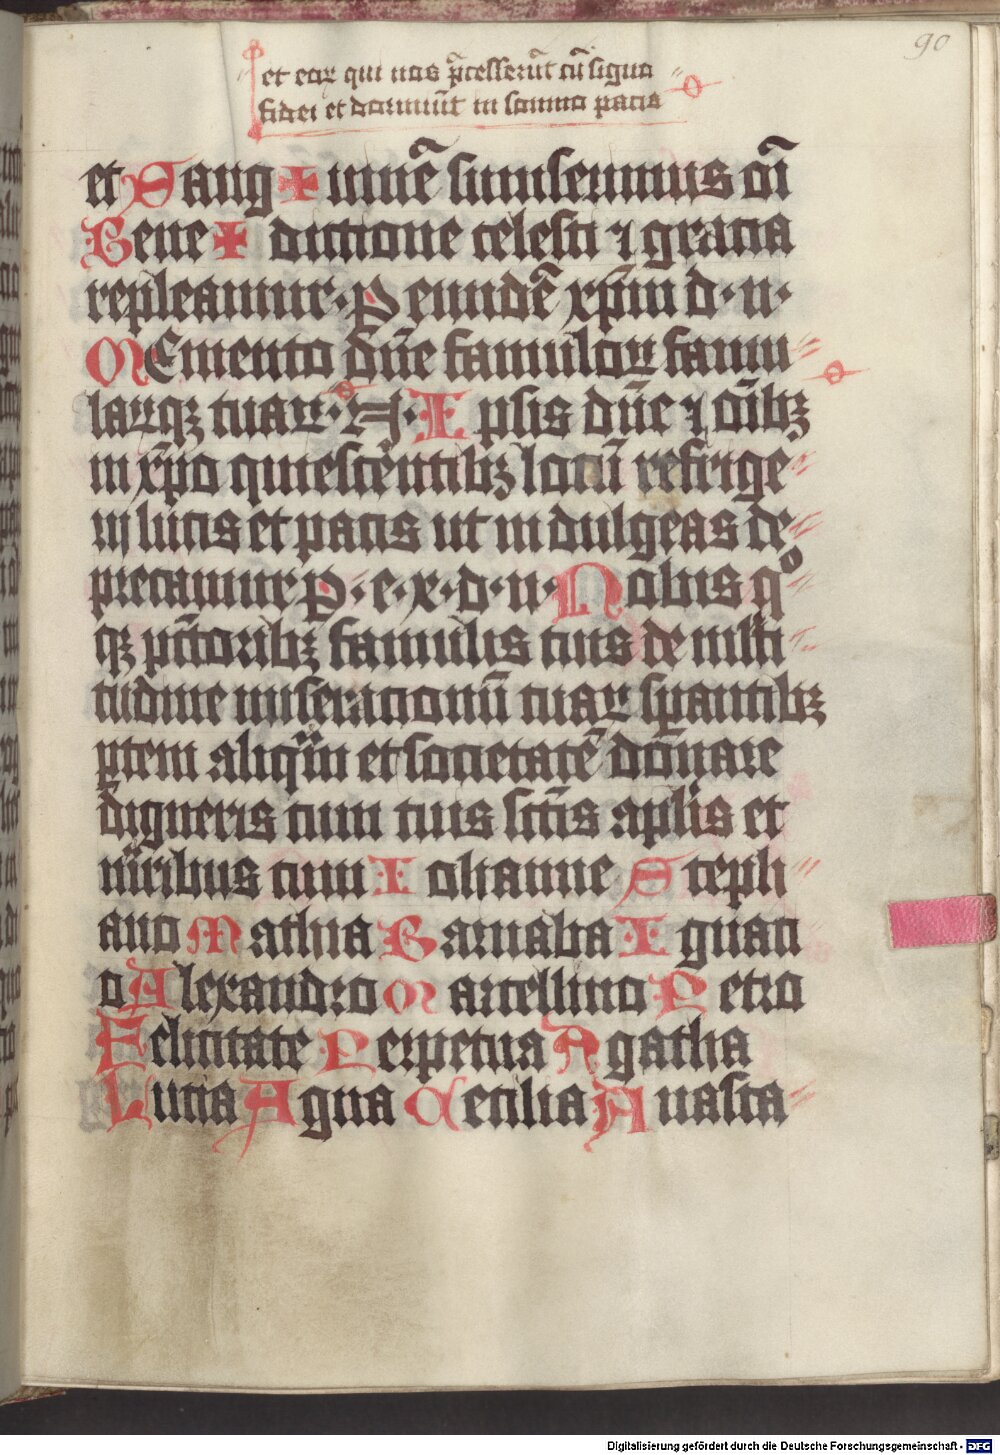 90
et eaꝝ qui nos p̄cesserūt cū signo
fidei et dormiūt in somno pacis
et Sang ✠ uinē sumserimus oı̄
Bene ✠ dictione celesti ⁊ gracia
repleamur · P eundē xp̄m d · n ·
Memento dn̄e famuloꝝ famu
laꝝqꝫ tuaꝝ · N · Ipsis dn̄e ⁊ oı̄bꝫ
in xp̄o quiescentibꝫ locū refrige
rij lucis et pacis ut indulgeas de
precamur P · e · x · d · n · Nobis qͦ
qꝫ pctoribꝫ famulis tuis de mlti
tudine miseracionū tuaꝝ sp̄antibꝫ
ꝑtem aliq̄m et societatē donare
digneris cum tuis sc̄tis apl̄is et
mr̄ibus cum Iohanne Steph
ano Mathia Barnaba Ignaci
o Alexandro Marcellino Petro
Felicitate Perpetua Agatha
Lucia Agna Cecilia Anasta
Digitalisierung gefördert durch die Deutsche Forschungsgemeinschaft - DFG